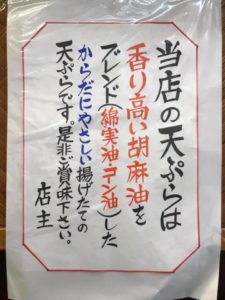 当店の天ぷらは
香り高い胡麻油を
ブレンド(綿実油・コーン油)した
からだにやさしい揚げたての
天ぷらです。是非ご賞味下さい。
店主